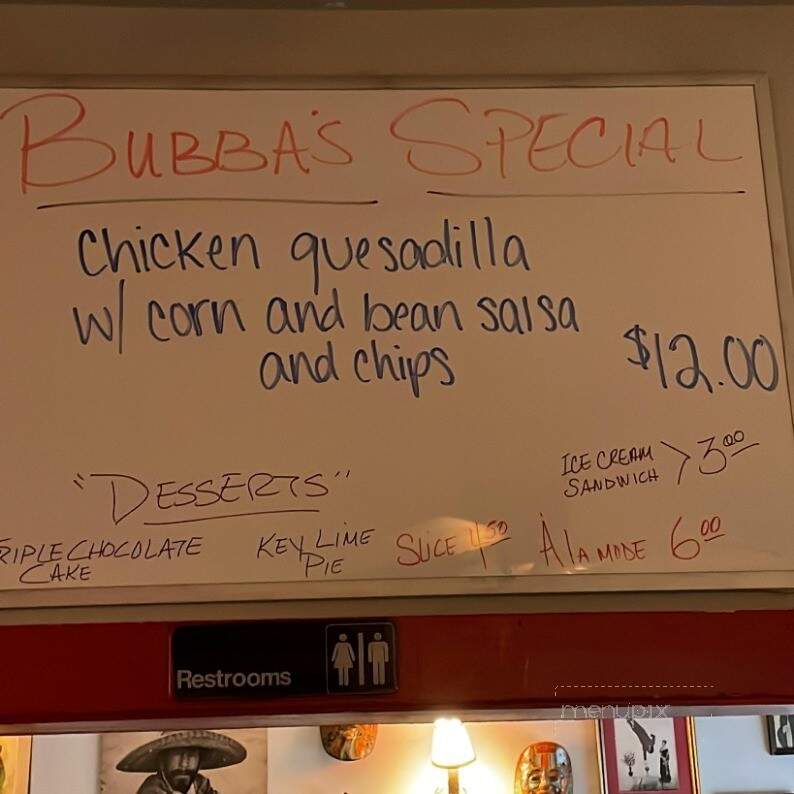 BUBBA'S SPECIAL
chicken quesadilla
w/ corn and bean salsa
and chips
$12.00
ICE CREAM
SANDWICH > 3.00
"DESSERTS"
RIPLE CHOCOLATE
CAKE
KEY LIME
PIE
SLICE 4.50
À LA MODE 6.00
Restrooms
menupix